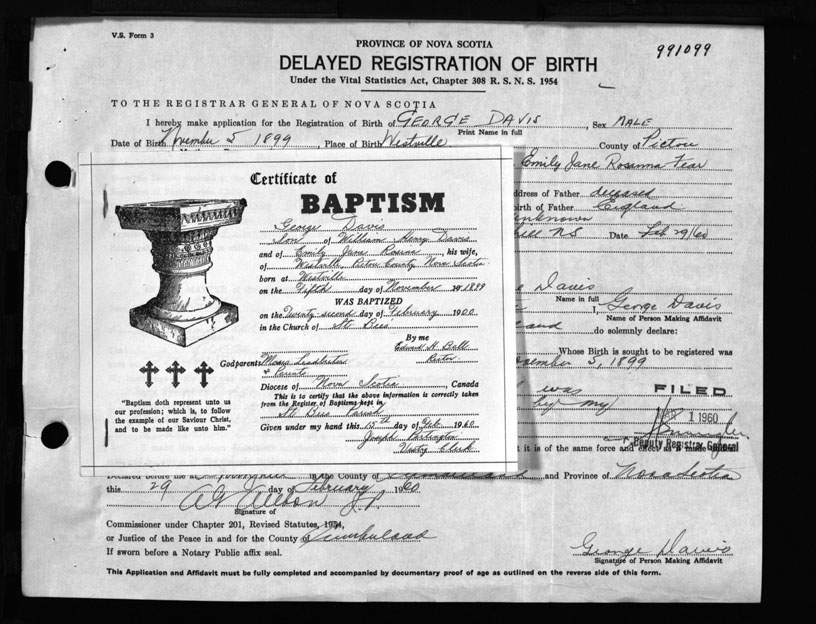 V.S. Form 3
991099
PROVINCE OF NOVA SCOTIA
DELAYED REGISTRATION OF BIRTH
Under the Vital Statistics Act, Chapter 308 R. S. N. S. 1954
TO THE REGISTRAR GENERAL OF NOVA SCOTIA
I hereby make application for the Registration of Birth of GEORGE DAVIS, Sex MALE
Print Name in full
Date of Birth November 5 1899, Place of Birth Westville County of Pictou
Emily Jane Rosanna Fear
ddress of Father deceased
irth of Father England
unknown
hill N.S Date Feb 29/60
Davis
Name in full
I, George Davis
Name of Person Making Affidavit
land do solemnly declare:
Whose Birth is sought to be registered was
ember 5, 1899
was
by my
FILED
1 1960
Deputy Registrar General
t is of the same force and effect as if made
Certificate of
BAPTISM
George Davis
Son of William Henry Davis
and of Emily Jane Rosanna, his wife,
of Westville, Pictou County Nova Scotia
born at Westville
on the Fifth day of November 1899
WAS BAPTIZED
on the Twenty-second day of February 1900
in the Church of St Bees
By me
Edward H. Ball
Rector
Godparents Moses Leadbeter
& Parents
Diocese of Nova Scotia, Canada
This is to certify that the above information is correctly taken
from the Register of Baptisms kept in
St Bees Parish
Given under my hand this 15th day of Feb. 1960
Joseph Partington
Vestry Clerk
"Baptism doth represent unto us
our profession; which is, to follow
the example of our Saviour Christ,
and to be made like unto him."
Declared before me at in the County of Cumberland and Province of Nova Scotia
this 29 day of February 1960
Signature of
Commissioner under Chapter 201, Revised Statutes, 1954,
or Justice of the Peace in and for the County of Cumberland
If sworn before a Notary Public affix seal.
George Davis
Signature of Person Making Affidavit
This Application and Affidavit must be fully completed and accompanied by documentary proof of age as outlined on the reverse side of this form.